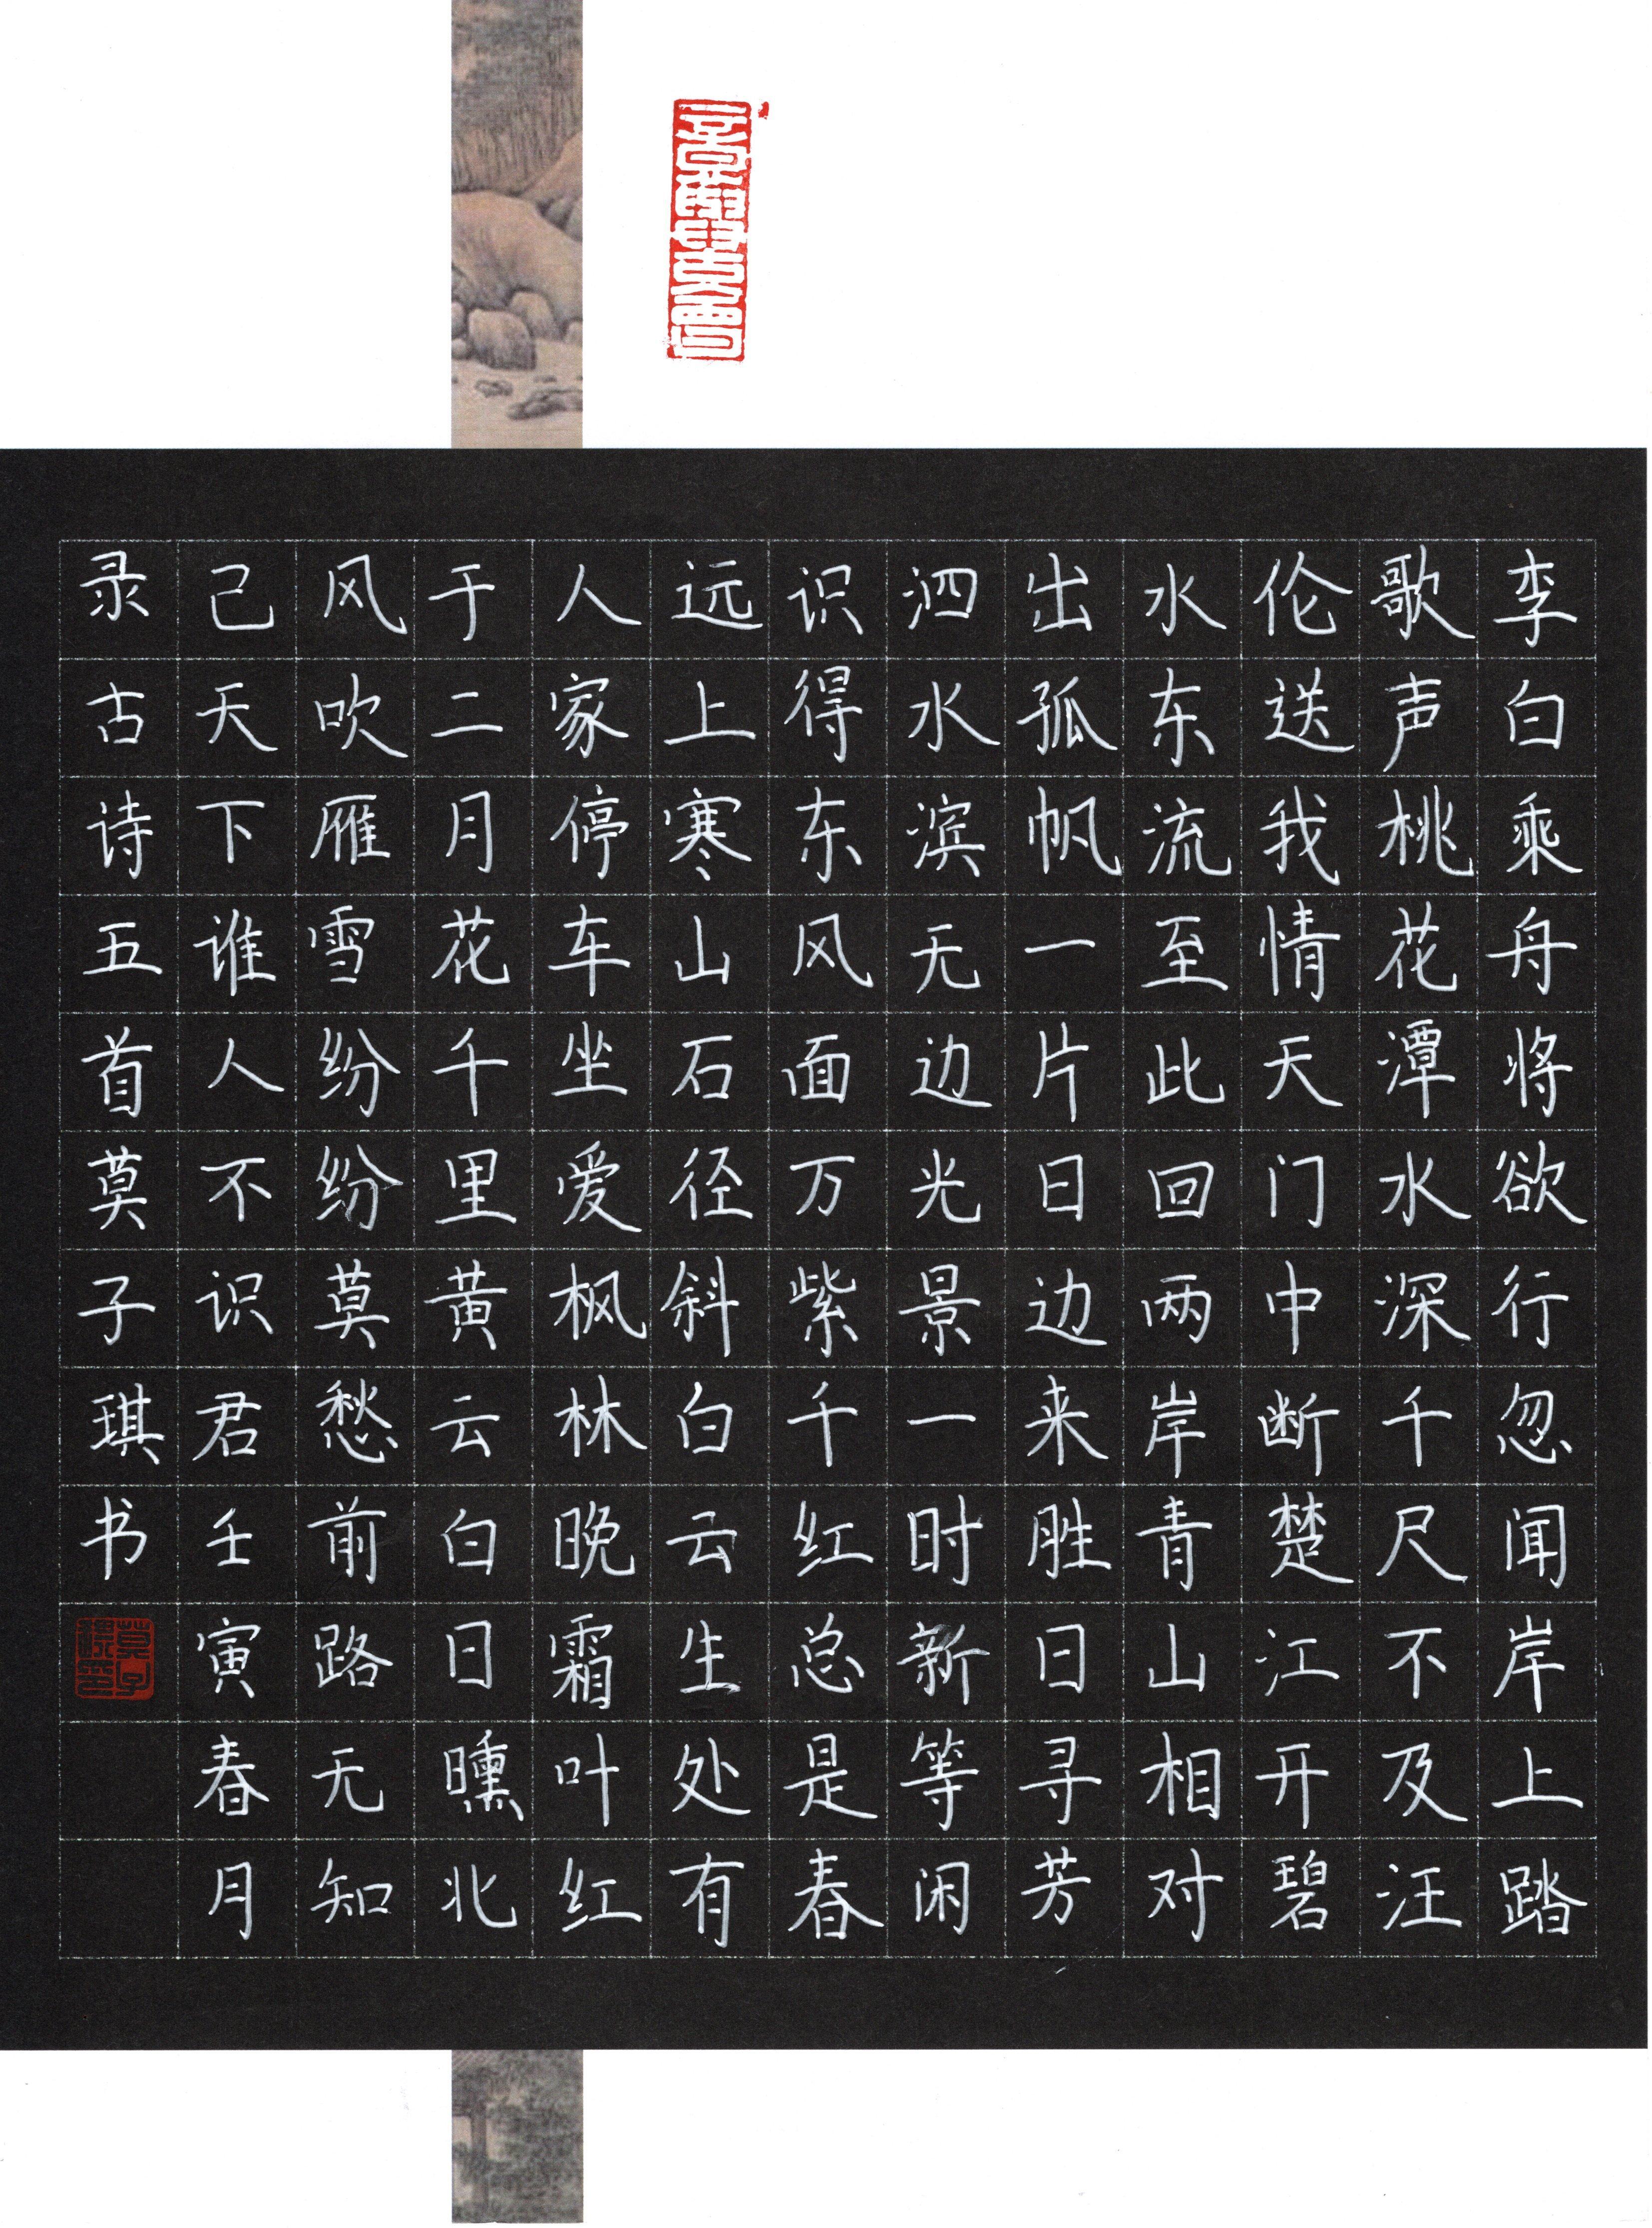 李白乘舟将欲行忽闻岸上踏
歌声桃花潭水深千尺不及汪
伦送我情天门中断楚江开碧
水东流至此回两岸青山相对
出孤帆一片日边来胜日寻芳
泗水滨无边光景一时新等闲
识得东风面万紫千红总是春
远上寒山石径斜白云生处有
人家停车坐爱枫林晚霜叶红
于二月花千里黄云白日曛北
风吹雁雪纷纷莫愁前路无知
己天下谁人不识君壬寅春月
录古诗五首莫子琪书
莫子琪印